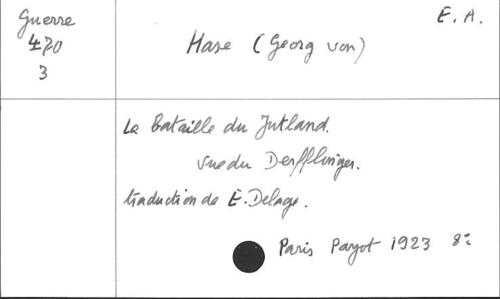 Guerre
470
3
E. A.
Hase (Georg von)
La Bataille du Jutland.
vue du Derfflinger.
traduction de E. Delage.
Paris Payot 1923 8º